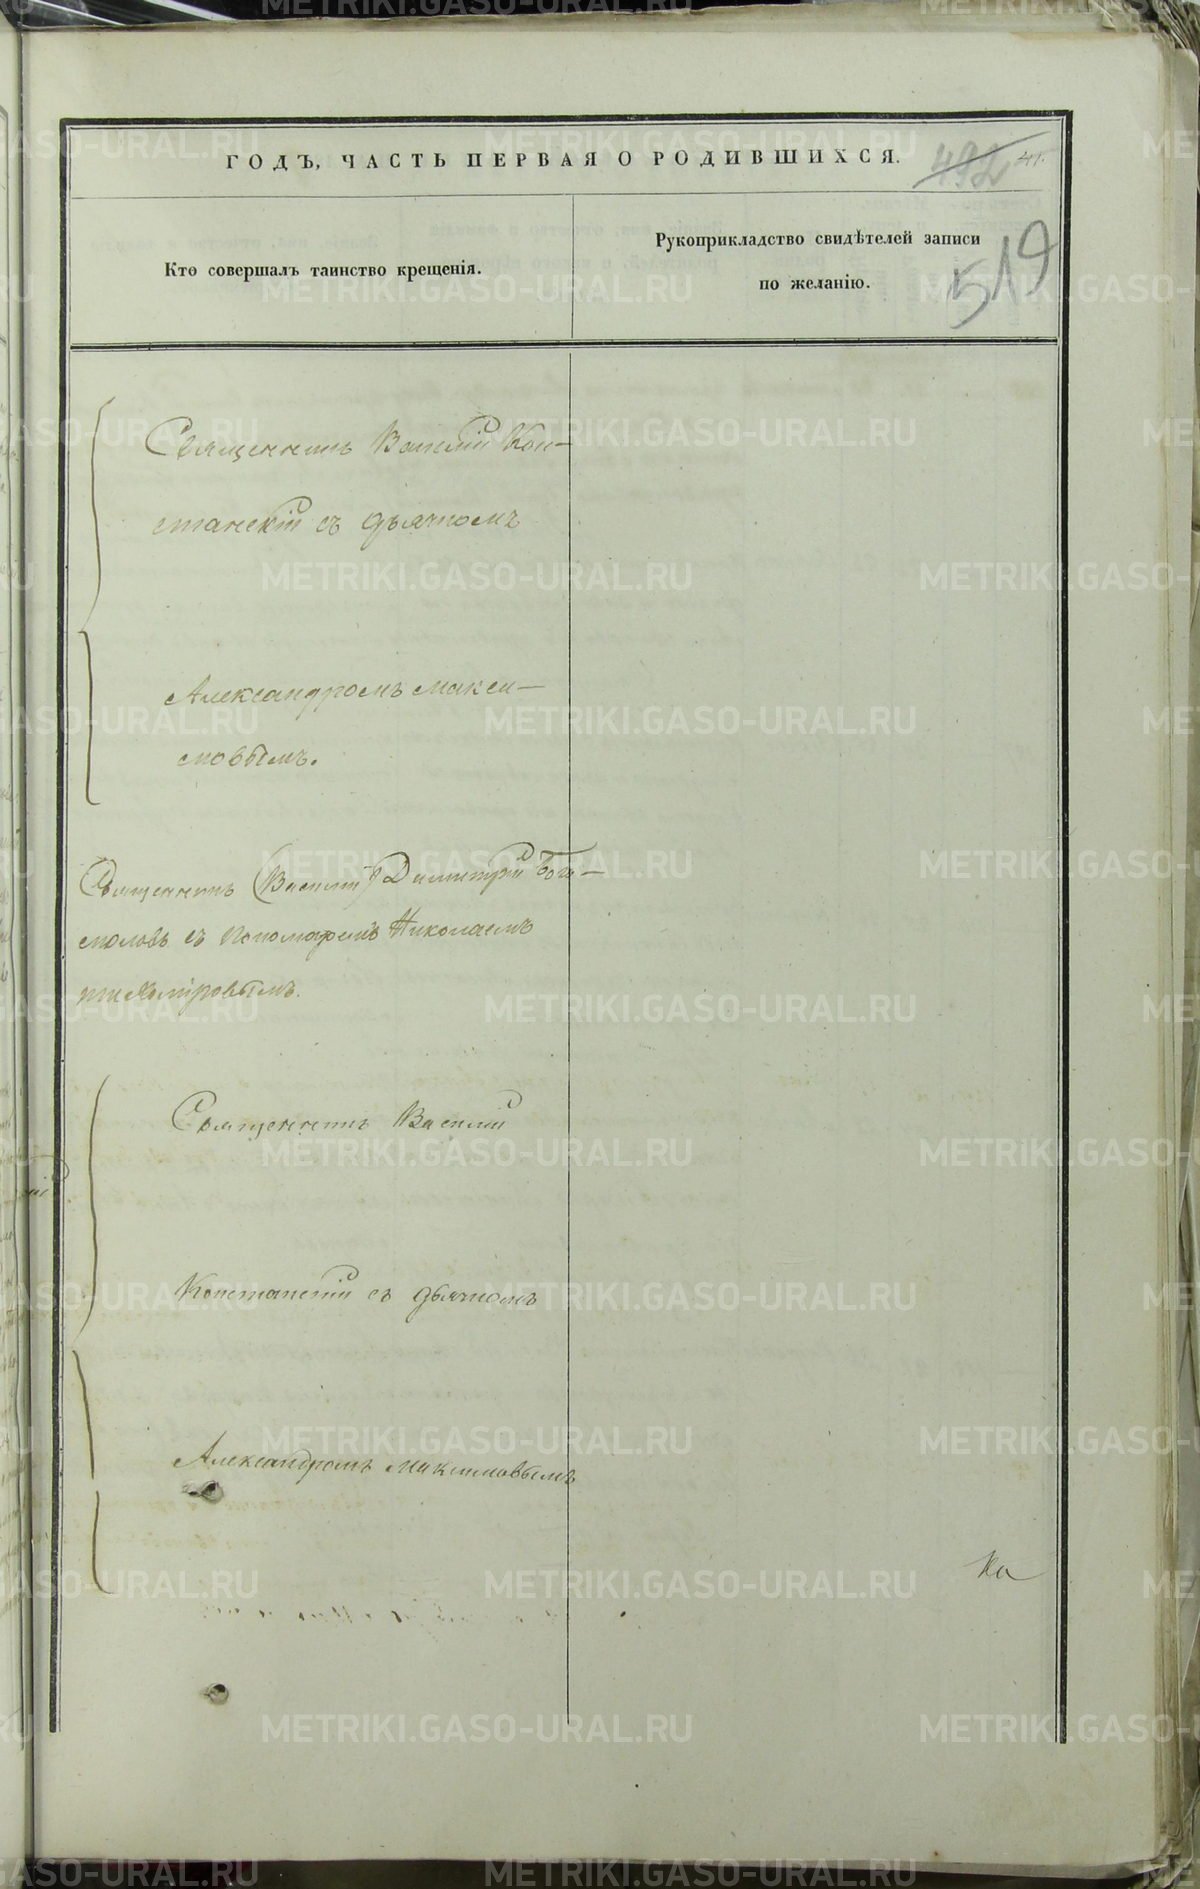 ГОДЪ, ЧАСТЬ ПЕРВАЯ О РОДИВШИХСЯ.
492 41.
Кто совершалъ таинство крещенія.
Рукоприкладство свидѣтелей записи
по желанію.
519
Священникъ Василій Кон-
станскій съ дьячкомъ
Александромъ Макси-
мовымъ.
Священникъ (Василій) Димитрій Бого-
моловъ съ Пономаремъ Николаемъ
Тихоміровымъ.
Священникъ Василій
Констанскій съ дьячкомъ
Александромъ Максимовымъ
На
METRIKI.GASO-URAL.RU